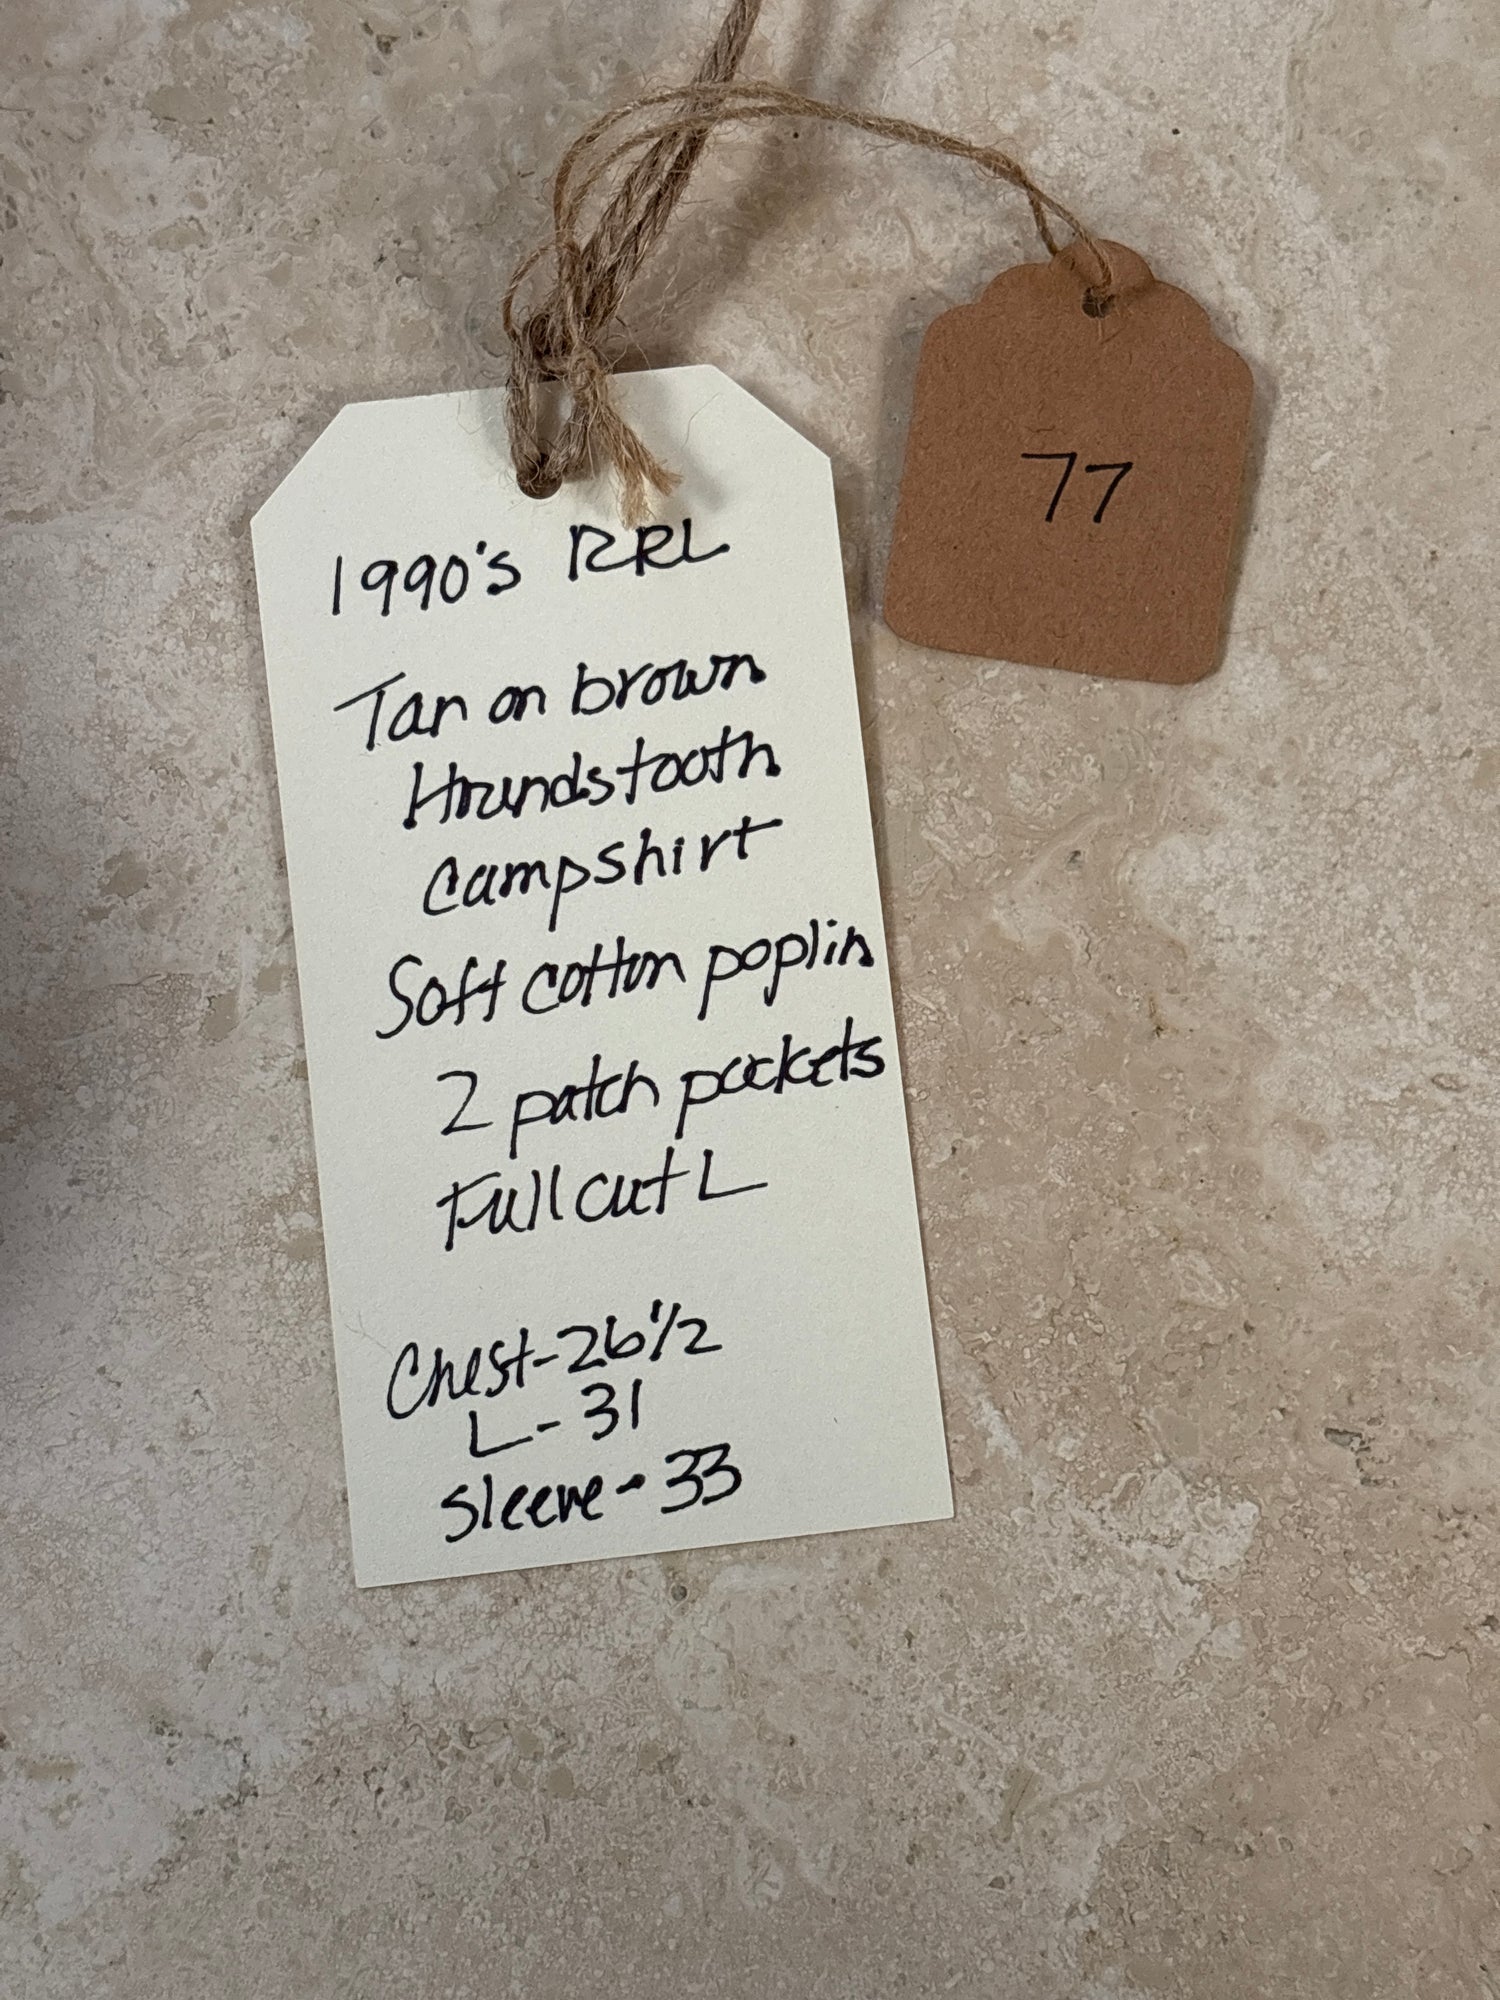 1990's RRL
Tan on brown
Houndstooth
campshirt
Soft cotton poplin
2 patch pockets
Full cut L
Chest-26 1/2
L-31
Sleeve-33
77